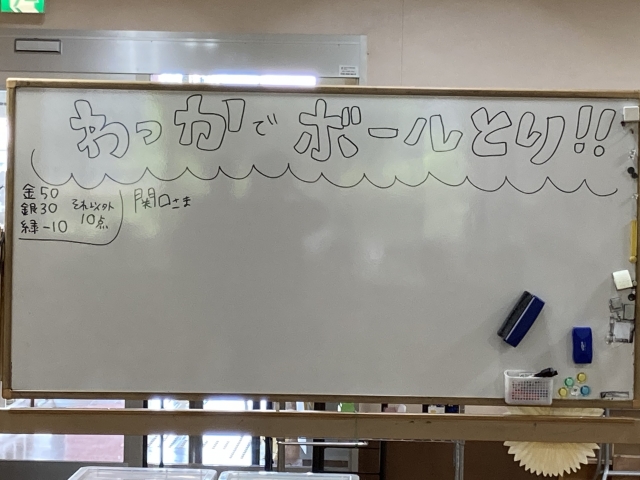 わっかでボールとり!!
金50
銀30
緑-10
それ以外
10点
関口さま